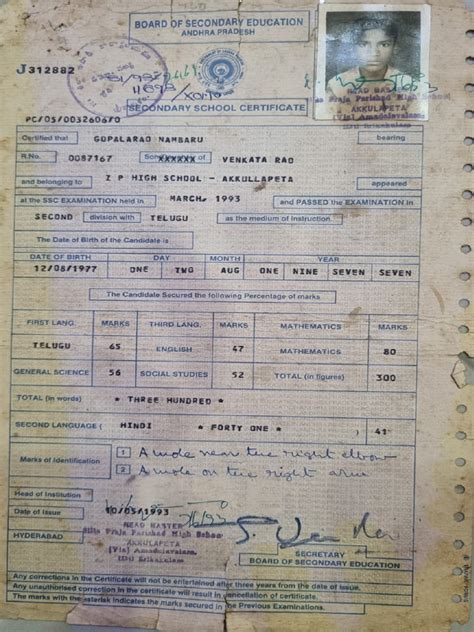 BOARD OF SECONDARY EDUCATION
ANDHRA PRADESH
J 312882
SECONDARY SCHOOL CERTIFICATE
HEAD MASTER
Zilla Praja Parishad High School
AKKULAPETA
(Via) Amadalavalasa,
PC/05/003260670
Certified that GOPALARAO NAMBARU bearing
R.No. 0087167 Son XXXXXX of VENKATA RAO
and belonging to Z P HIGH SCHOOL - AKKULLAPETA appeared
at the SSC EXAMINATION held in MARCH, 1993 and PASSED the EXAMINATION in
SECOND division with TELUGU as the medium of instruction.
The Date of Birth of the Candidate is
DATE OF BIRTH DAY MONTH YEAR
12/08/1977 ONE TWO AUG ONE NINE SEVEN SEVEN
The Candidate Secured the following Percentage of marks
FIRST LANG. MARKS THIRD LANG. MARKS MATHEMATICS MARKS
TELUGU 65 ENGLISH 47 MATHEMATICS 80
GENERAL SCIENCE 56 SOCIAL STUDIES 52 TOTAL (in figures) 300
TOTAL (in words) * THREE HUNDRED *
SECOND LANGUAGE ( HINDI * FORTY ONE * ) 41
Marks of Identification 1 A mole near the right elbow
2 A mole on the right arm
Head of Institution
Date of Issue 10/05/1993
HEAD MASTER
Zilla Praja Parishad High School
AKKULAPETA
(Via) Amadalavalasa,
HYDERABAD
SECRETARY
BOARD OF SECONDARY EDUCATION
Any corrections in the Certificate will not be entertained after three years from the date of issue.
Any unauthorised correction in the certificate will result in cancellation of certificate.
The marks with the asterisk indicates the marks secured in the Previous Examinations.